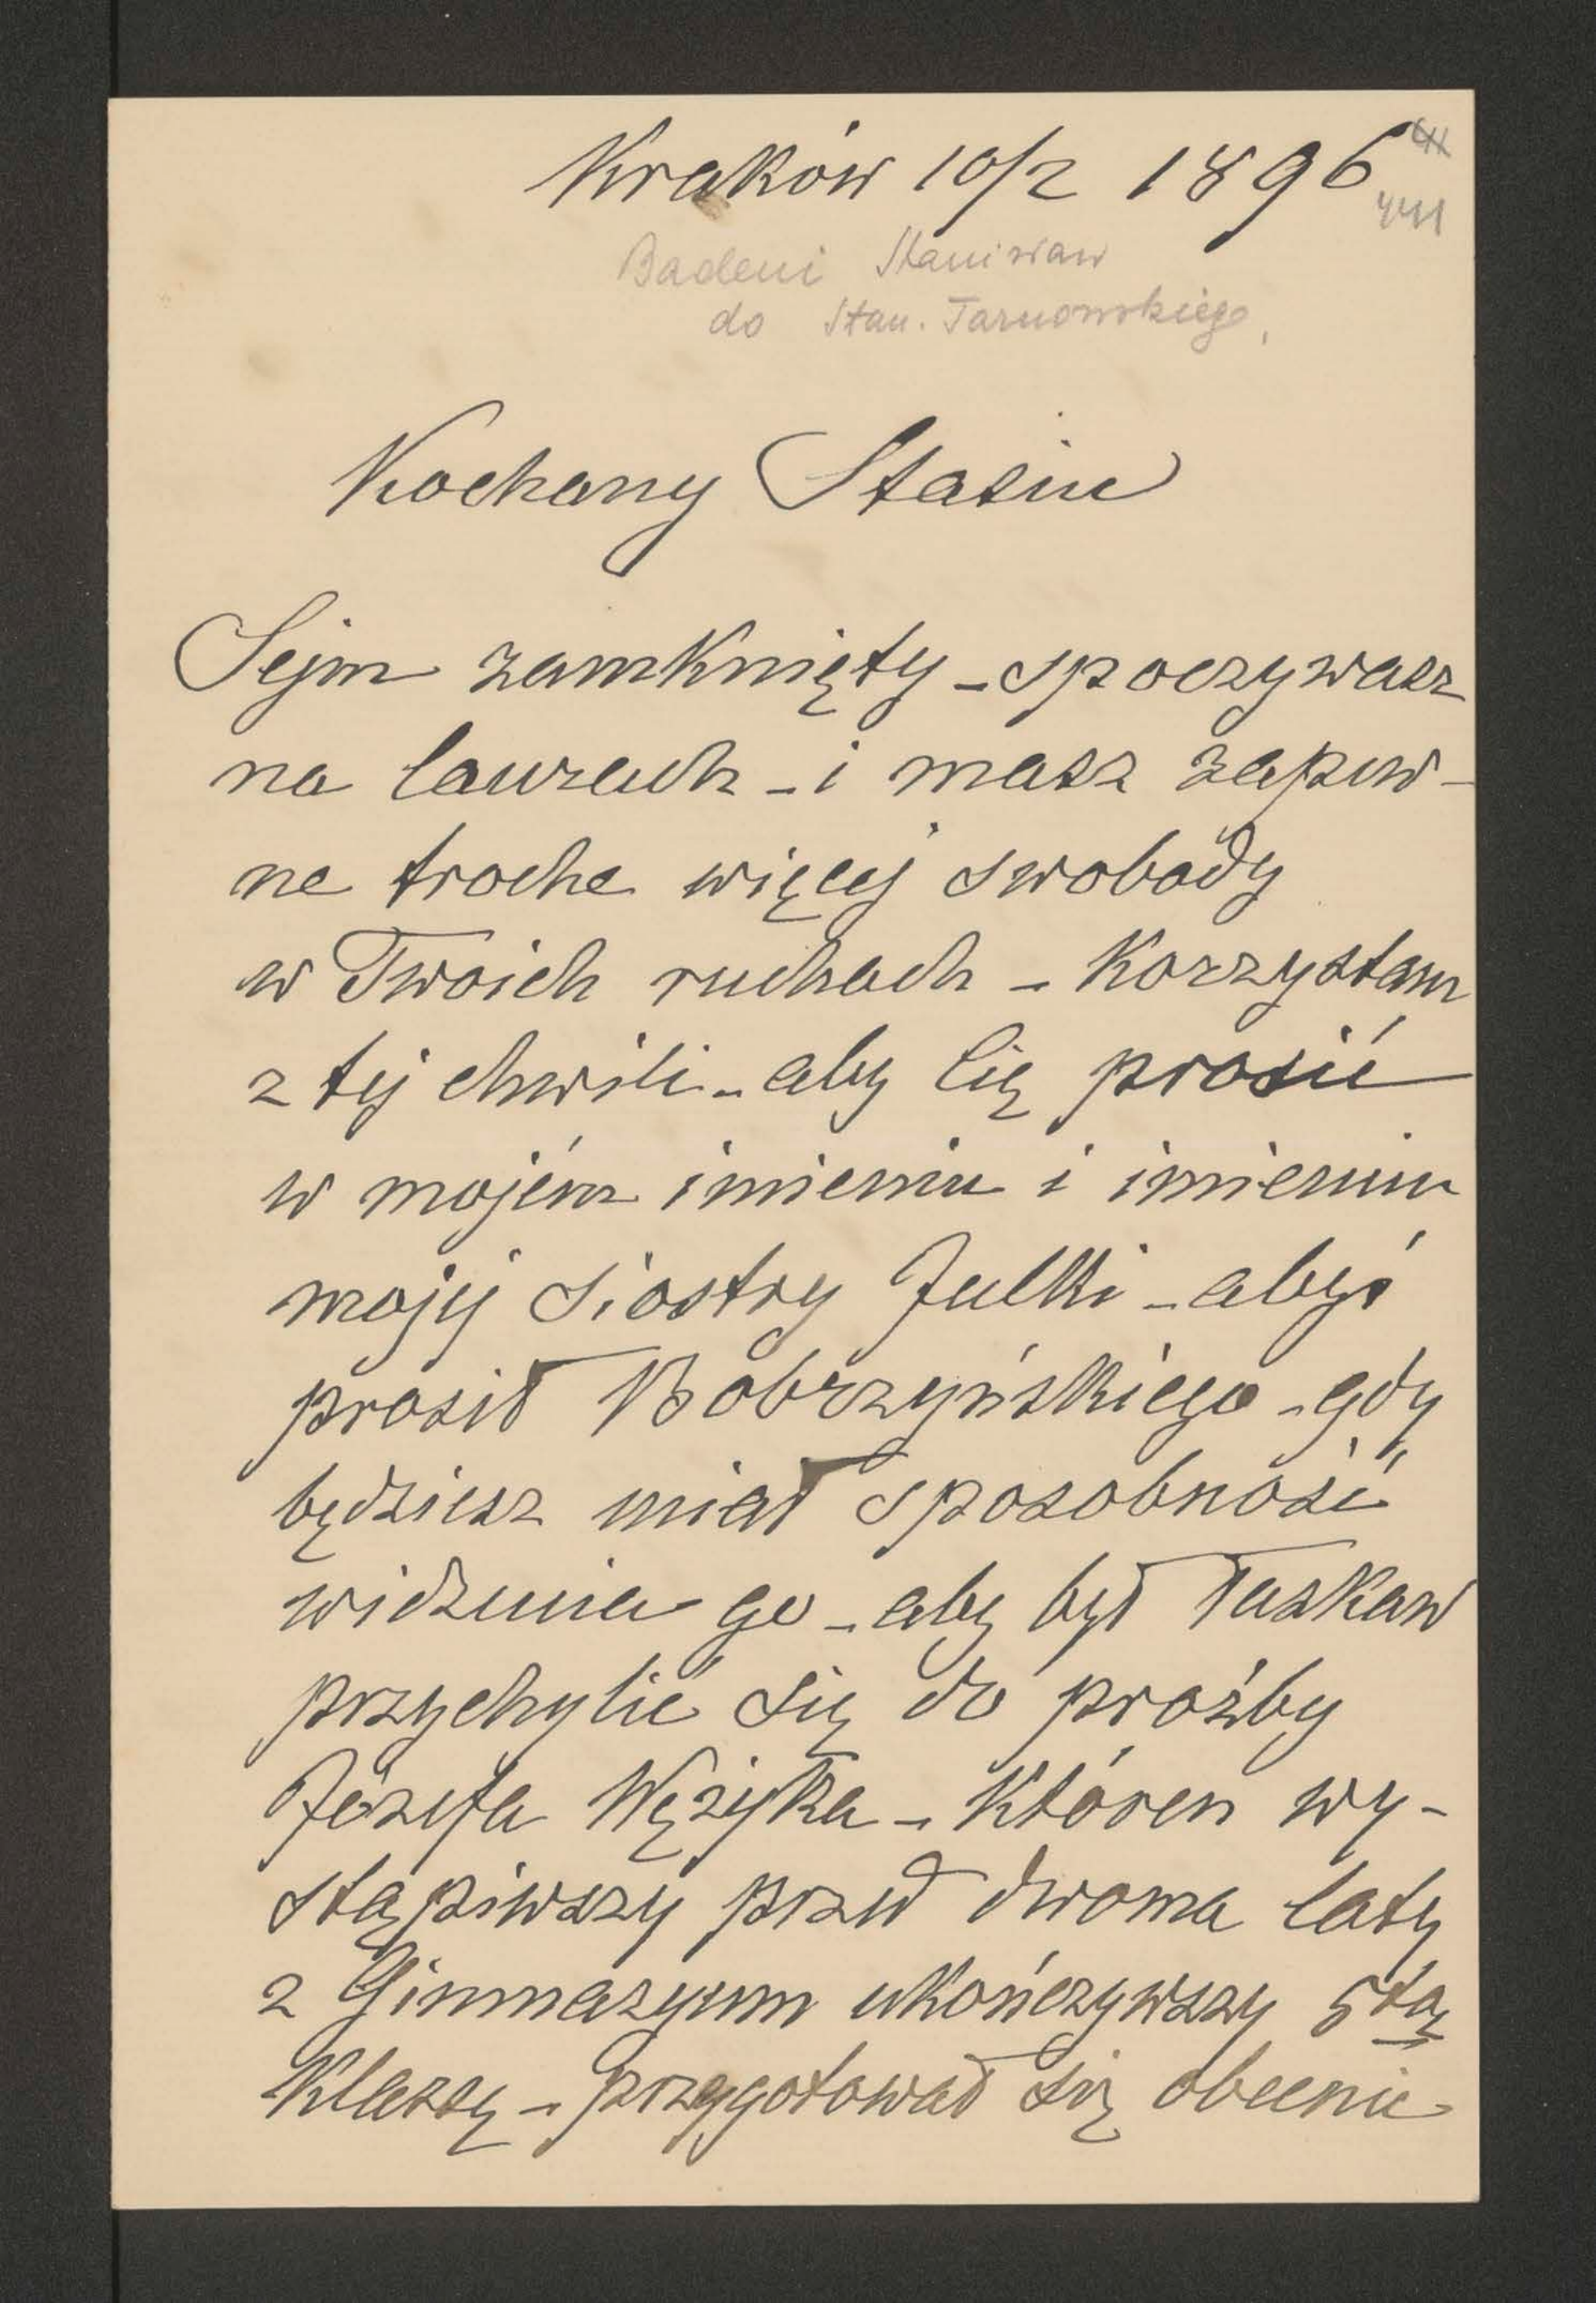 Kraków 10/2 1896
441
Badeni Stanisław
do Stan. Tarnowskiego,
Kochany Stasiu
Sejm zamknięty - spoczywasz
na laurach - i masz zapew-
ne troche więcej swobody
w Twoich ruchach - Korzystam
z tej chwili - aby Cię prosić
w mojém imieniu i imieniu
mojej Siostry Julki - abyś
prosił Bobrzyńskiego - gdy
będziesz miał sposobność
widzenia go - aby był łaskaw
przychylić się do prośby
Józefa Wężyka - któren wy-
stąpiwszy przed dwoma laty
z Gimnazyum ukończywszy 5tą
Klassę - przygotował się obecnie